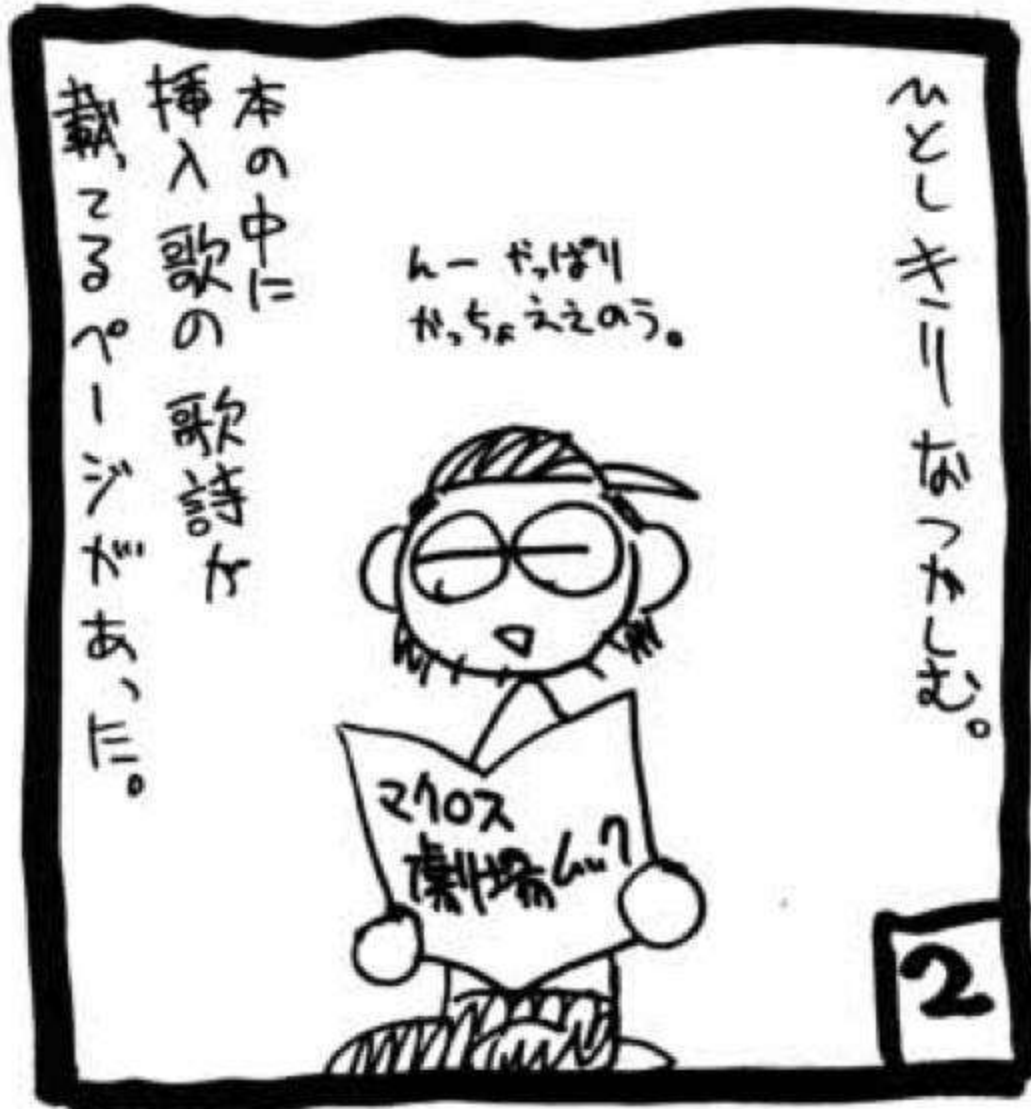 ひとしきりなつかしむ。
んー やっぱり
かっちょええのう。
本の中に
挿入歌の歌詩が
載ってるページがあって。
マクロス
劇場ムック
2